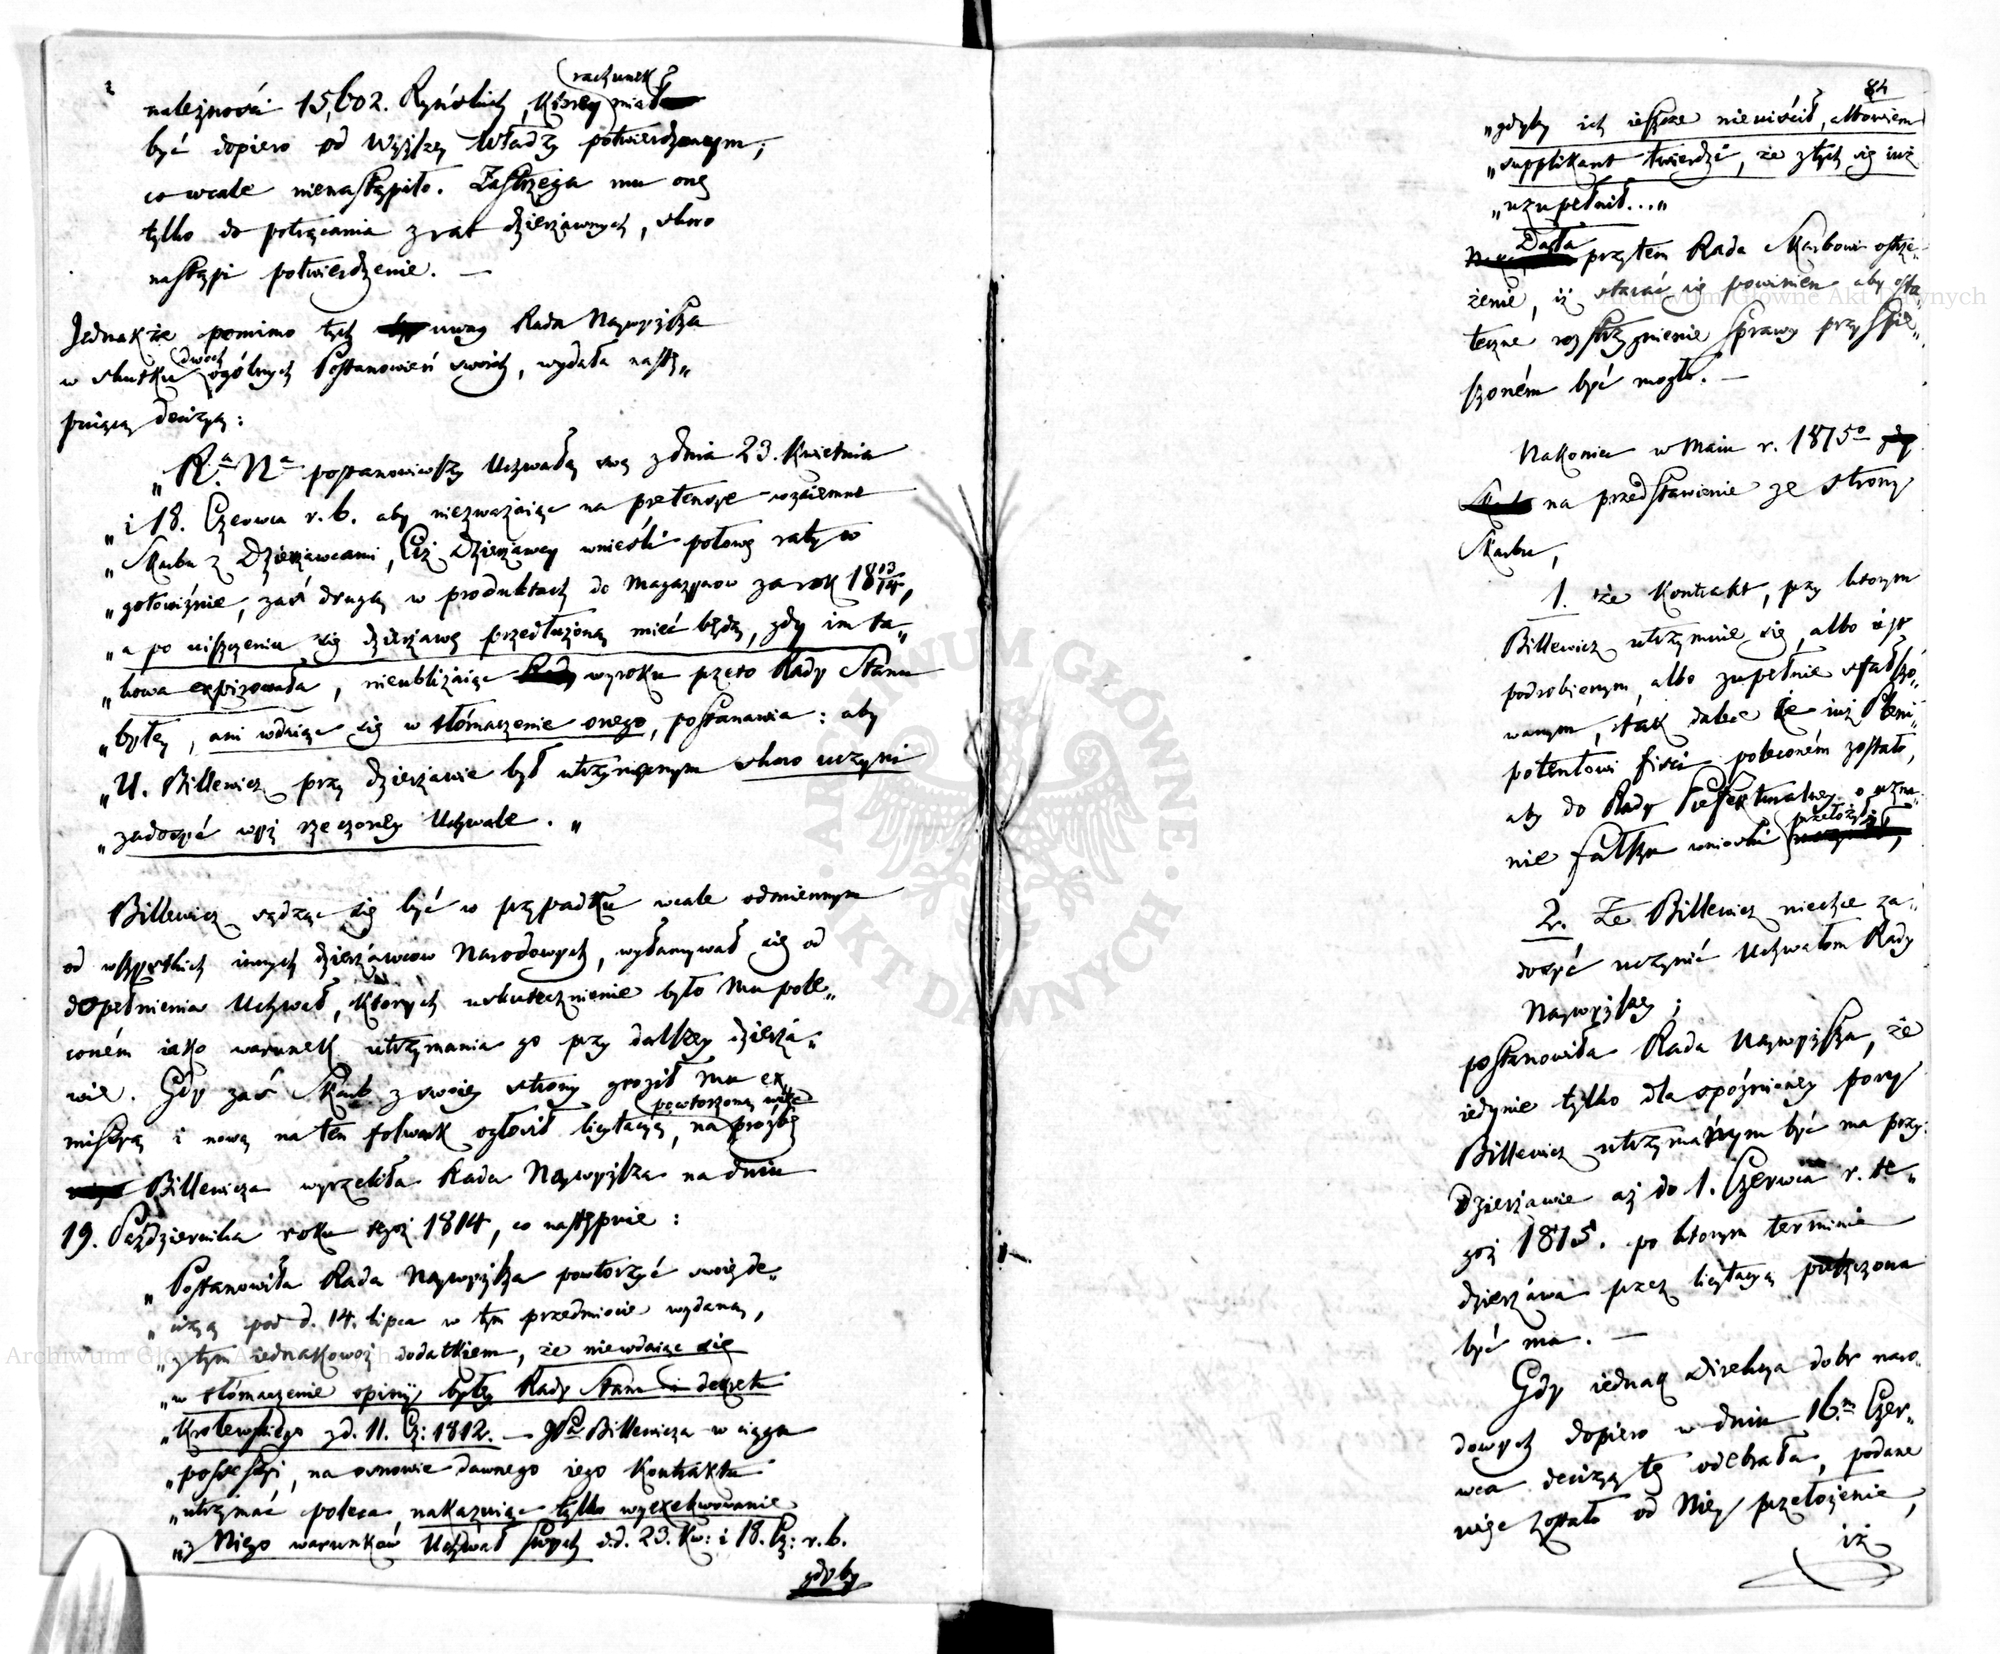 należności 15,602. Ryńskich, któréy rachunek miał
być dopiero od wyższey Władzy potwierdzonym,
co wcale nienastąpiło. Zastrzega mu onę
tylko do potrącania z rat dzierżawnych, skoro
nastąpi potwierdzenie. —
Jednakże pomimo tych uwag Rada Naywyższa
w skutku dwóch ogólnych Postanowień swoich, wydała nastę„
puiącą decizyą:
„R.ª Nª postanowiwszy Uchwałą swą z dnia 23. Kwietnia
„i 18. Czerwca r. b. aby niezważaiąc na pretensye wzaiemne
„Skarbu z Dzierżawcami, Ciż Dzierżawcy wnieśli połowę raty w
„gotowiźnie, zaś drugą w produktach do Magazynów za rok 18 13/14,
„a po uiszczeniu się dzierżawę przedłużoną mieć będą, gdy im ta„
„kowa expirowała, nieubliżaiąc wyroku przeto Rady Stanu
„byłey, ani wdaiąc się w tłómaczenie onego, postanawia: aby
„U. Billewicz przy dzierżawie był utrzymanym skoro uczyni
„zadosyć wyż rzeczoney Uchwale. „
Billewicz sądząc się być w przypadku wcale odmiennym
od wszystkich innych dzierżawców Narodowych, wyłamywał się od
dopełnienia Uchwał, których uskutecznienie było mu pole„
coném iako warunek utrzymania go przy dalszey dzierża„
wie. Gdy zaś Skarb z swoiey strony groził mu ex
missyą i nową na ten folwark ogłosił licytacyą, na powtorzoną prozbę
Billewicza wyrzekła Rada Naywyższa na dniu
19. Października roku tegoż 1814, co następuie:
„Postanowiła Rada Naywyższa powtorzyć swoię de„
„cizyą pod d. 14. lipca w tym przedmiocie wydaną,
„z tym iednakowoż dodatkiem, że niewdaiąc się
„w tłómaczenie opinij byłey Rady Stanu i dekretu
„Krolewskiego z d. 11. Cz: 1812. — Billewicza w ciągu
„possessyi, na osnowie dawnego iego Kontraktu
„utrzymać poleca, nakazuiąc tylko wyexekwowanie
„z Niego warunków Uchwał swych d.d. 23. Kw: i 18. Cz: r. b.
gdyby
84
„gdyby ich ieszcze nieuiścił, albowiem
„supplikant twierdzi, że z tych się iuż
„uzupełnił..."
Dała przytem Rada Skarbowi ostrze„
żenie, iż starać się powinien aby osta„
teczne rozstrzygnienie sprawy przyspie„
szoném być mogło. —
Nakoniec w Maiu r. 1815º
na przedstawienie ze strony
Skarbu,
1. że Kontrakt, przy którym
Billewicz utrzymuie się, albo iest
podrobionym, albo zupełnie sfałszo„
wanym, tak dalece że iuż Pleni„
potentowi fisci poleconém zostało,
aby do Rady Prefekturalney o uzna„
nie fałszu wnioski przełożył,
2. Że Billewicz niechce za„
dosyć uczynić Uchwałom Rady
Naywyższey;
postanowiła Rada Naywyższa, że
iedynie tylko dla spóźnioney pory
Billewicz utrzymanym być ma przy
Dzierżawie aż do 1. Czerwca r. te„
goż 1815. po którym terminie
dzierżawa przez licytacyą puszczona
być ma. —
Gdy iednak Direkcya dobr naro„
dowych dopiero w dniu 16.m Czer„
wca decizyą tę odebrała, podane
więc zostało od Niey przełożenie,
iż